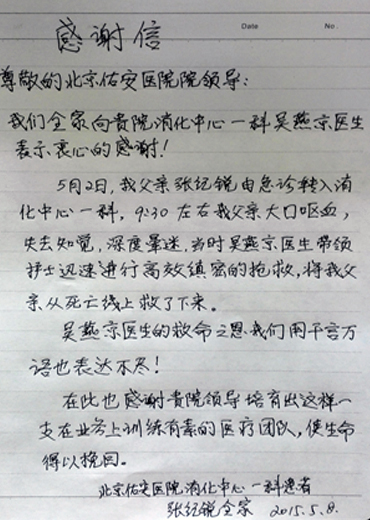 Date No.
感谢信
尊敬的北京佑安医院院领导:
我们全家向贵院消化中心一科吴燕京医生
表示衷心的感谢!
5月2日,我父亲张纪锐由急诊转入消
化中心一科,9:30左右我父亲大口呕血,
失去知觉,深度昏迷,当时吴燕京医生带领
护士迅速进行高效缜密的抢救,将我父
亲从死亡线上救了下来。
吴燕京医生的救命之恩我们用千言万
语也表达不尽!
在此也感谢贵院领导培育出这样一
支在业务上训练有素的医疗团队,使生命
得以挽回。
北京佑安医院消化中心一科患者
张纪锐全家 2015.5.8.